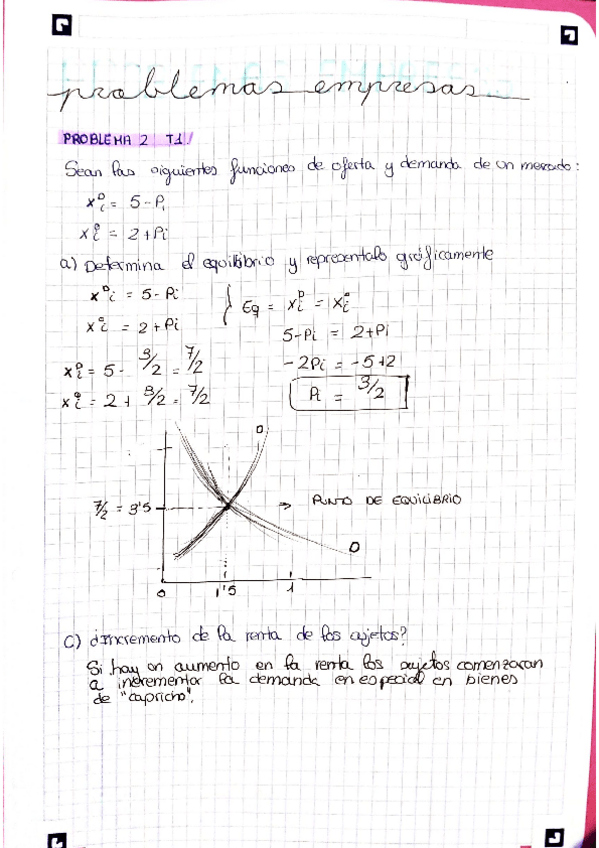 problemas empresas
PROBLEMA 2 T1!
Sean las siguientes funciones de oferta y demanda de un mercado:
xᴰi = 5 - Pi
xᵒi = 2 + Pi
a) Determina el equilibrio y represéntalo gráficamente
xᴰi = 5 - Pi } Eq = xᴰi = xᵒi
xᵒi = 2 + Pi
5 - Pi = 2 + Pi
- 2Pi = - 5 + 2
Pi = 3/2
xᴰi = 5 - 3/2 = 7/2
xᵒi = 2 + 3/2 = 7/2
O
7/2 = 3'5
PUNTO DE EQUILIBRIO
D
0 1'5 1
C) ¿Incremento de la renta de los sujetos?
Si hay un aumento en la renta los sujetos comenzaran
a incrementar la demanda en especial en bienes
de "capricho".